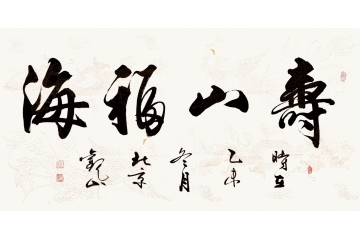 壽山福海
時在
乙未
冬月
北京